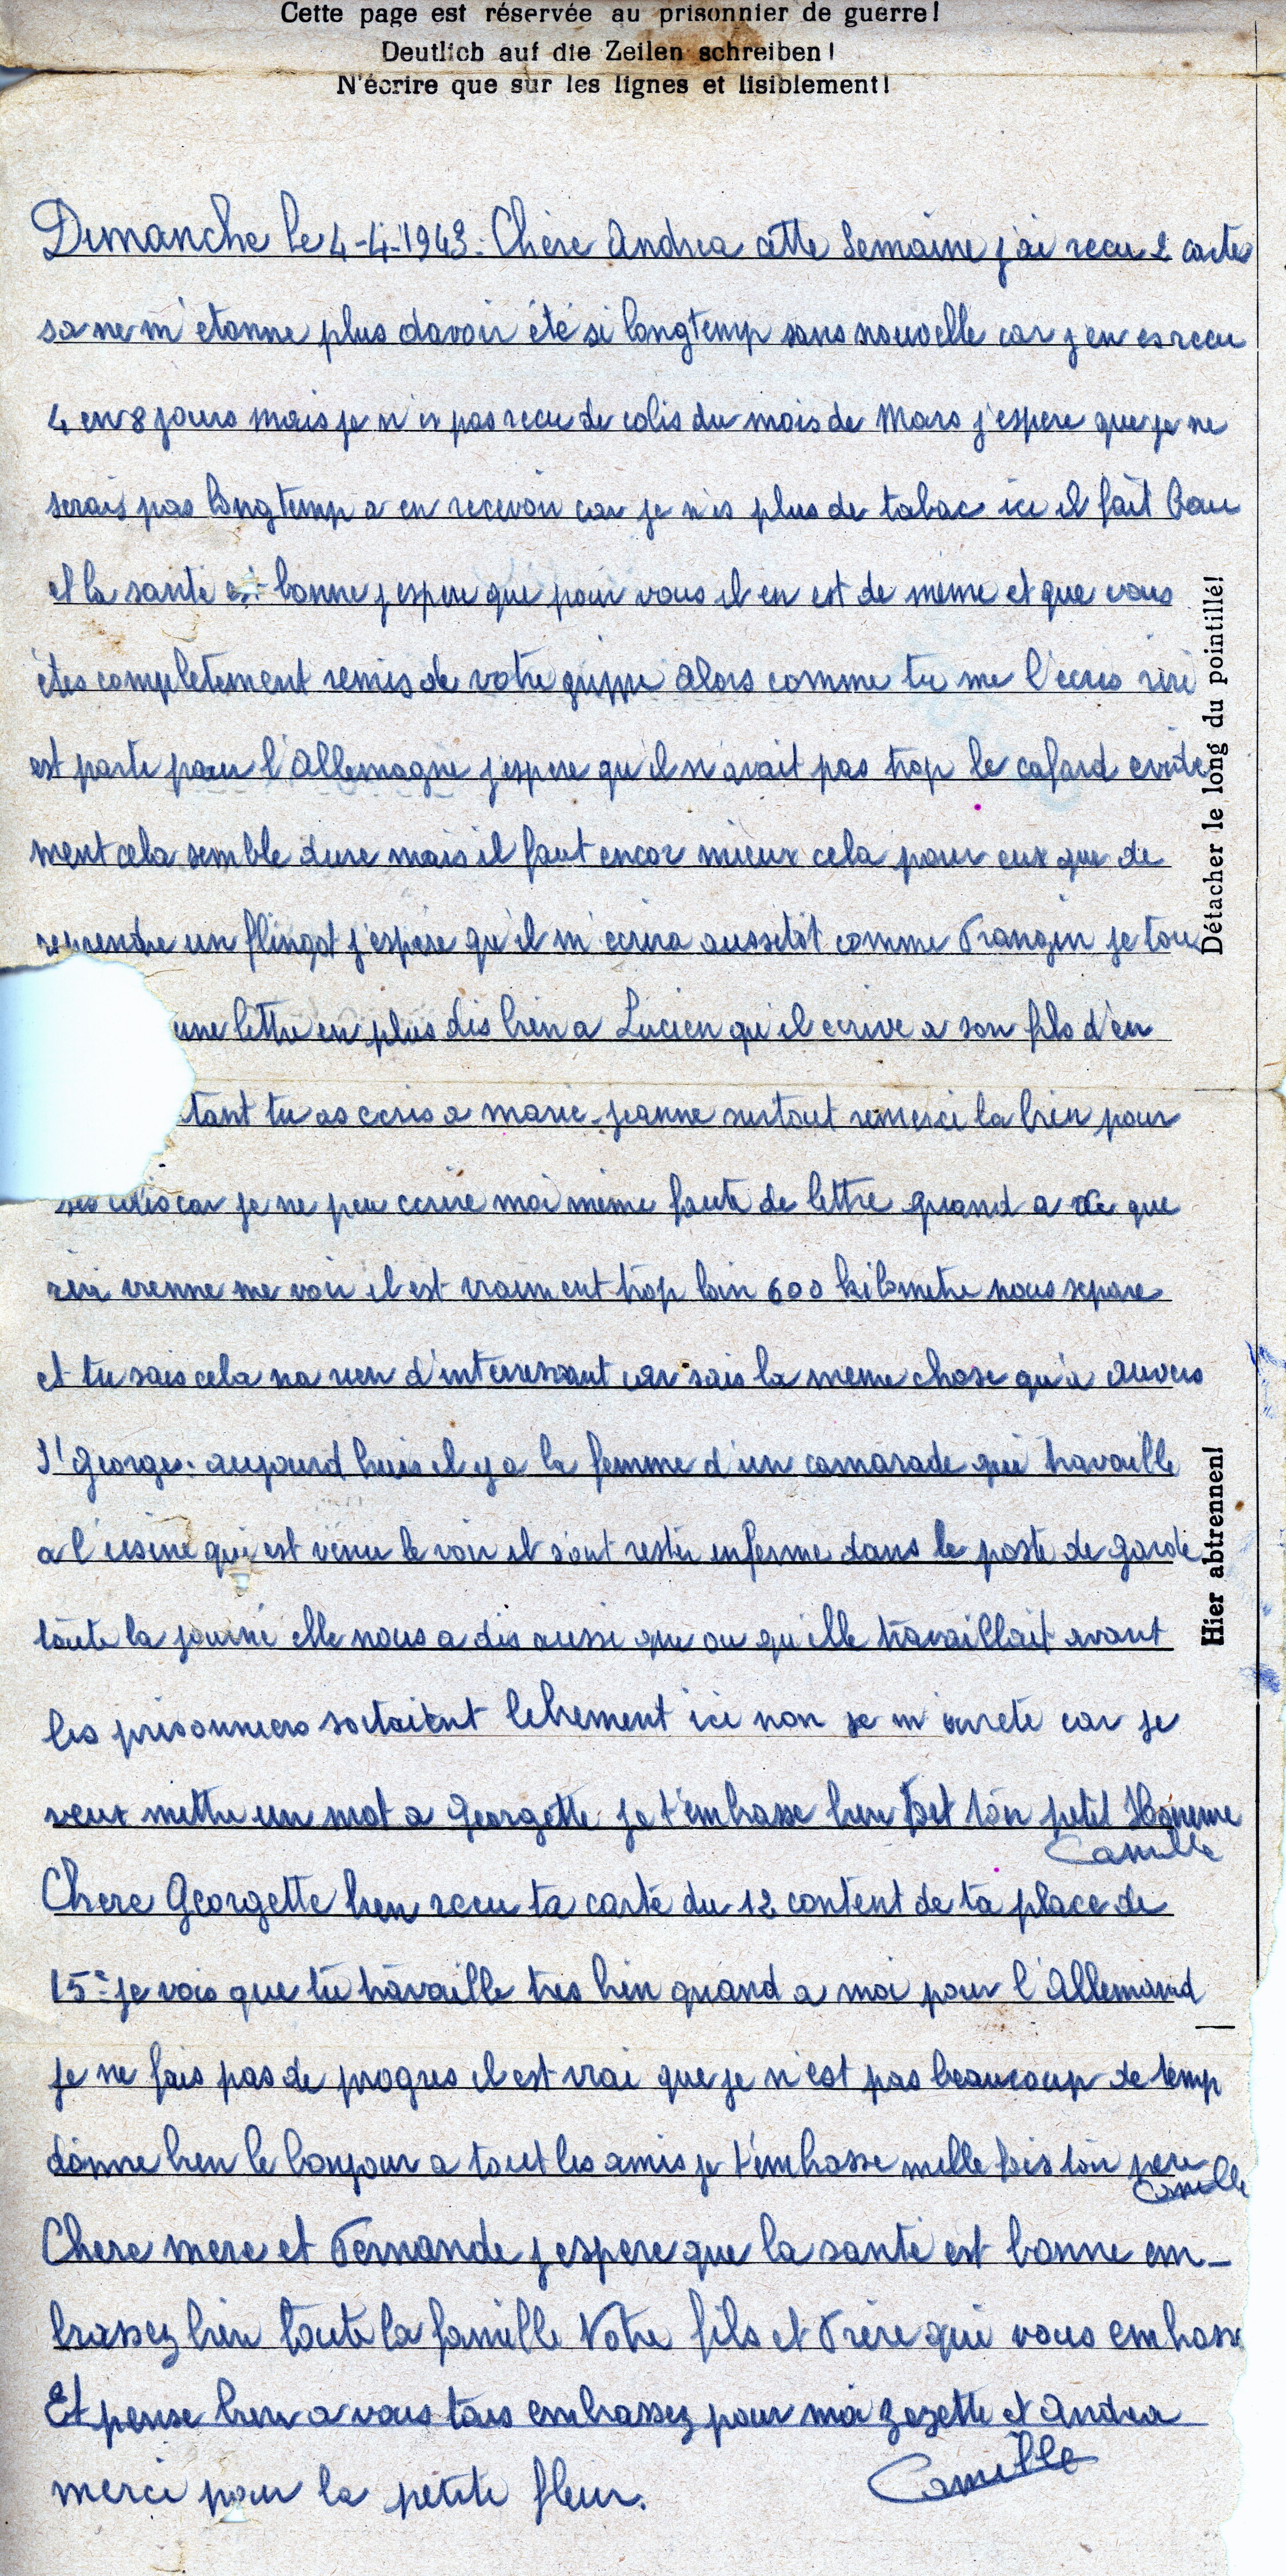 Cette page est réservée au prisonnier de guerre!
Deutlich auf die Zeilen schreiben!
N'écrire que sur les lignes et lisiblement!
Dimanche le 4-4-1943. Chère Andrea cette Semaine j'ai recu 2 cartes
sa ne m'etonne plus davoir été si longtemp sans nouvelle car j'en es recu
4 en 8 jours mais je n'es pas recu de colis du mois de Mars j'espere que je ne
serais pas longtemp a en recevoir car je n'es plus de tabac ici il fait beau
et la santé est bonne j'espere que pour vous il en est de même et que vous
êtes completement remis de votre grippe alors comme tu me l'ecris riri
est parti pour l'Allemagne j'espere qu'il n'avait pas trop le cafard evide
ment cela semble dure mais il faut encor mieux cela pour eux que de
reprendre un flingot j'espère qu'il m'ecrira aussitôt comme Frangin je
une lettre en plus dis bien a Lucien qu'il ecrive a son fils d'en
tant tu as ecris a marie-jeanne surtout remerci la bien pour
ses colis car je ne peu ecrire moi même faute de lettre quand a ce que
riri vienne me voir il est vraiment trop loin 600 kilometre nous separe
et tu sais cela na rien d'interressant car sais la meme chose qu'a auvers
St Georges. aujourd huis il y a la femme d'un camarade qui travaille
a l'usine qui est venu le voir il sont restés enferme dans le poste de garde
toute la journé elle nous a dis aussi que ou qu'elle travaillait avant
les prisonniers sortaient librement ici non je m'arrete car je
veux mettre un mot a Georgette je t'embrasse bien fort ton petit Homme
Camille
Chere Georgette bien recu ta carte du 12 content de ta place de
15e je vois que tu travaille tres bien quand a moi pour l'Allemand
je ne fais pas de progres il est vrai que je n'est pas beaucoup de temp
donne bien le bonjour a tout les amis je t'embrasse mille fois ton pere
Camille
Chere mere et Fernande j'espere que la santé est bonne em-
brassez bien toute la famille Votre fils et Frère qui vous embrasse
Et pense bien a vous tous embrassez pour moi zezette et Andrea
merci pour la petite fleur.
Camille
Détacher le long du pointillé!
Hier abtrennen!